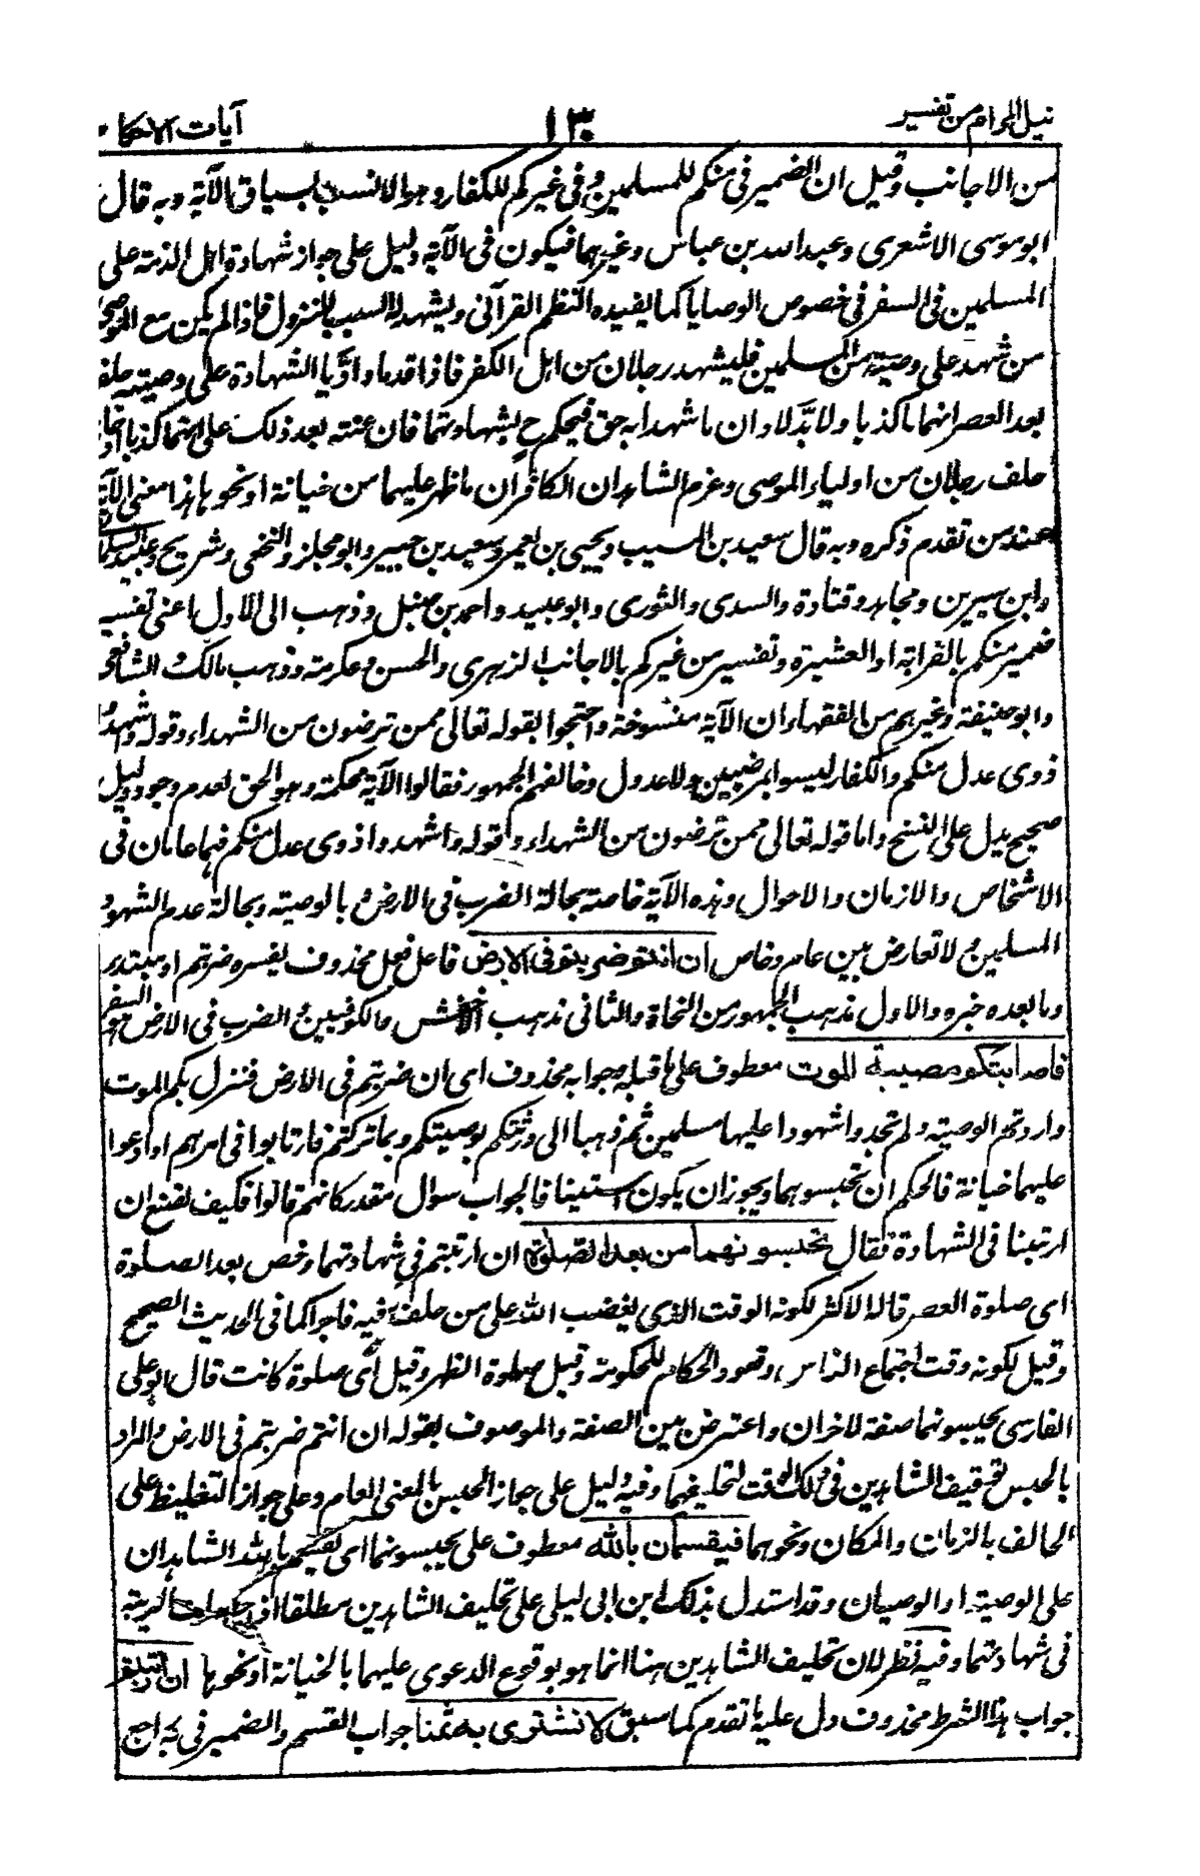 نيل المرام من تفسير ١٣٠ آيات الاحكام
من الاجانب وقيل ان الضمير فى منكم للمسلمين وفى غيركم للكفار وهو الانسب لسياق الآية وبه قال
ابو موسى الاشعرى وعبد الله بن عباس وغيرهما فيكون فى الآية دليل على جواز شهادة اهل الذمة على
المسلمين فى السفر فى خصوص الوصايا كما يفيده النظم القرآنى ويشهد له السبب للنزول فاذا لم يكن مع الموصى
من شهد على وصيته من المسلمين فليشهد رجلان من اهل الكفر فاذا قدما وادّيا الشهادة على وصيته حلفا
بعد العصر انهما ما كذبا ولا بدّلا وان ما شهدا به حق فيحكم ح بشهادتهما فان عثر بعد ذلك على انهما كذبا او خانا
حلف رجلان من اولياء الموصى وغرم الشاهدان الكافران ما ظهر عليهما من خيانة او نحوها هذا معنى الآية
عند من تقدم ذكره وبه قال سعيد بن المسيب ويحيى بن يعمر وسعيد بن جبير وابو مجلز والنخعى وشريح وعبيدة السلمانى
وابن سيرين ومجاهد وقتادة والسدى والثورى وابو عبيد واحمد بن حنبل وذهب الى الاول اعنى تفسير
ضمير منكم بالقرابة او العشيرة وتفسير من غيركم بالاجانب الزهرى والحسن وعكرمة وذهب مالك والشافعى
وابو حنيفة وغيرهم من الفقهاء ان الآية منسوخة واحتجوا بقوله تعالى ممن ترضون من الشهداء وقوله واشهدوا
ذوى عدل منكم والكفار ليسوا بمرضيين ولا عدول وخالفهم الجمهور فقالوا الآية محكمة وهو الحق لعدم وجود دليل
صحيح يدل على النسخ واما قوله تعالى ممن ترضون من الشهداء وقوله واشهدوا ذوى عدل منكم فهما عامان فى
الاشخاص والازمان والاحوال وهذه الآية خاصة بحالة الضرب فى الارض وبالوصية وبحالة عدم الشهود
المسلمين ولا تعارض بين عام وخاص ان انتم ضربتم فى الارض فاعل فعل محذوف يفسره ضربتم او مبتدء
وما بعده خبره والاول مذهب الجمهور من النحاة والثانى مذهب الاخفش والكوفيين والضرب فى الارض هو السفر
فاصابتكم مصيبة الموت معطوف على ما قبله وجوابه محذوف اى ان ضربتم فى الارض فنزل بكم الموت
واردتم الوصية ولم تجدوا شهودا عليها مسلمين ثم ذهبا الى ورثتكم بوصيتكم وبما تركتم فارتابوا فى امرهم او ادعوا
عليهما خيانة فالحكم ان تحبسوهما ويجوز ان يكون استينافا لجواب سوال مقدر كانهم قالوا فكيف نصنع ان
ارتبنا فى الشهادة فقال تحبسونهما من بعد الصلوة ان ارتبتم فى شهادتهما وخص بعد الصلوة
اى صلوة العصر قاله الاكثر لكونه الوقت الذى يغضب الله على من حلف فيه فاجرا كما فى الحديث الصحيح
وقيل لكونه وقت اجتماع الناس وقعود الحكام للحكومة وقيل صلوة الظهر وقيل أىّ صلوة كانت قال ابو على
الفارسى يحبسونهما صفة لآخران واعترض بين الصفة والموصوف بقوله ان انتم ضربتم فى الارض والمراد
بالحبس توقيف الشاهدين فى ذلك الوقت لتحليفهما وفيه دليل على جواز الحبس بالمعنى العام وعلى جواز التغليظ على
الحالف بالزمان والمكان ونحوهما فيقسمان بالله معطوف على يحبسونهما اى يقسم بالله الشاهدان
على الوصية او الوصيان وقد استدل بذلك ابن ابى ليلى على تحليف الشاهدين مطلقا اذا حصلت الريبة
فى شهادتهما وفيه نظر لان تحليف الشاهدين هنا انما هو بوقوع الدعوى عليهما بالخيانة او نحوها ان ارتبتم
جواب هذا الشرط محذوف دل عليه ما تقدم كما سبق لا نشترى به ثمنا جواب القسم والضمير فى به راجع